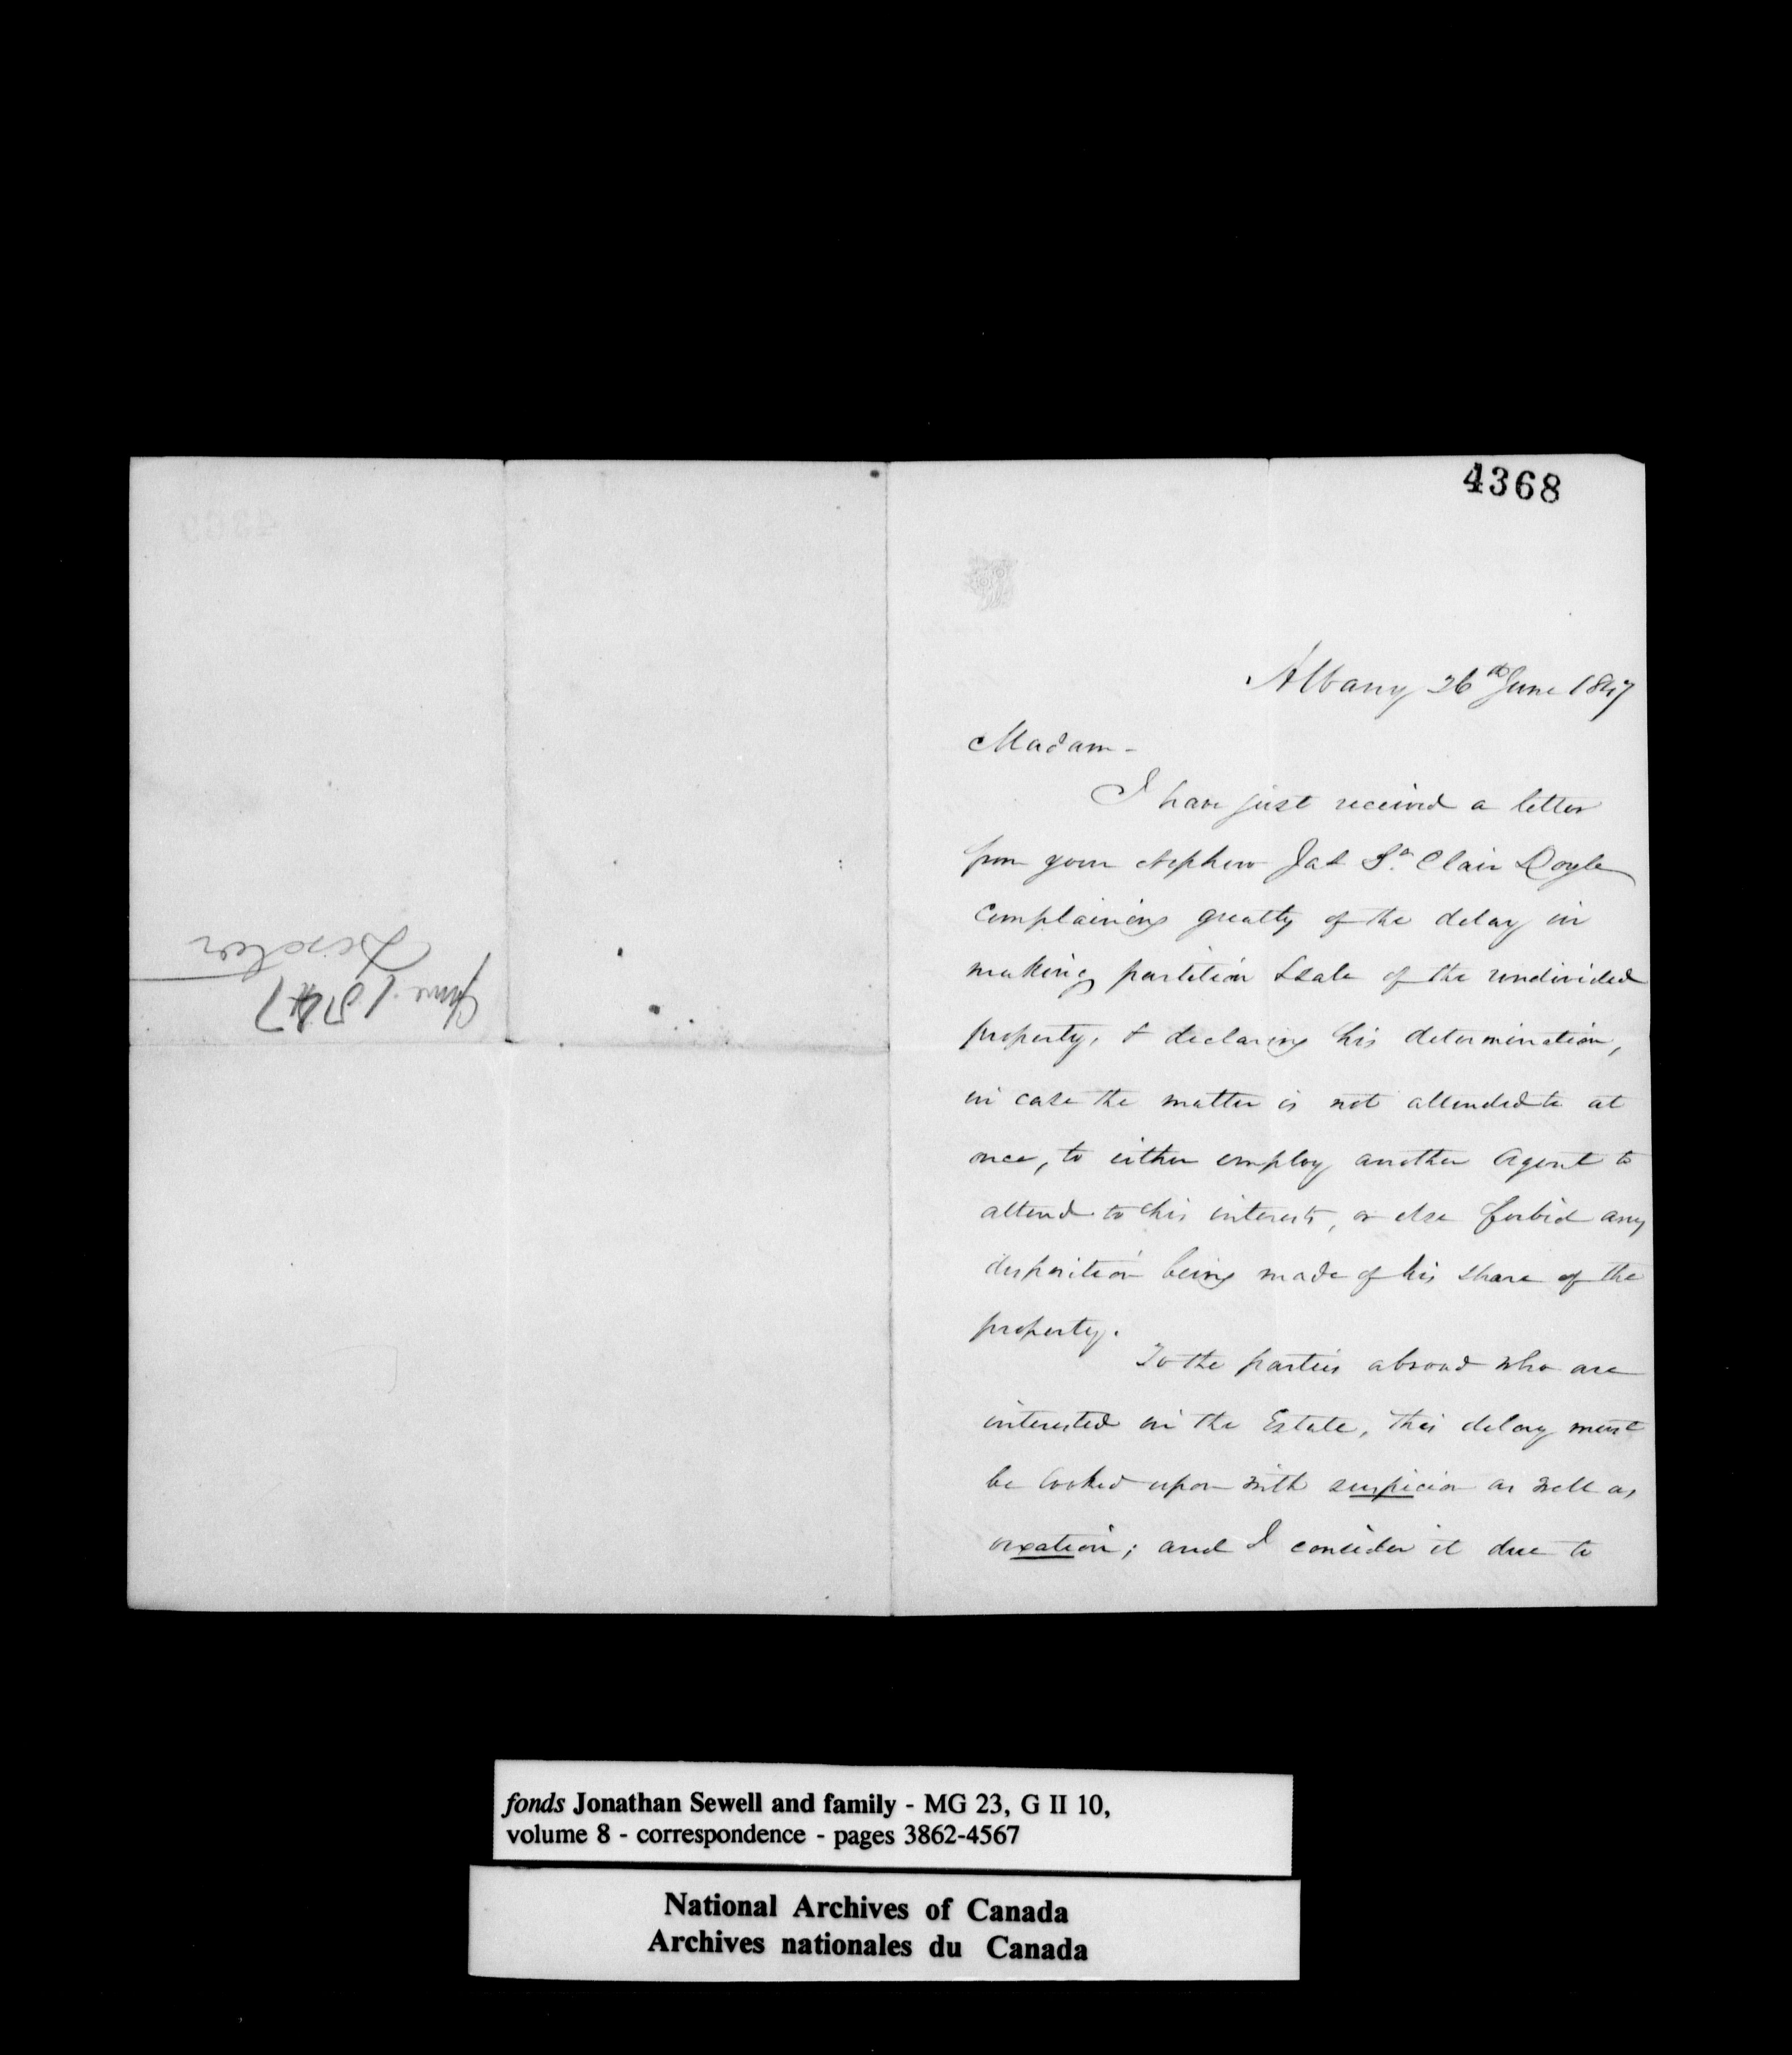 4368
Albany 26th June 1847
Madam-
I have just received a letter
from your Nephew Jas St. Clair Doyle
complaining greatly of the delay in
making partition & sale of the undivided
property, & declaring his determination,
in case the matter is not attended to at
once, to either employ another Agent to
attend to his interests, or else forbid any
disposition being made of his share of the
property.
To the parties abroad who are
interested in the Estate, this delay must
be looked upon with suspicion as well as
vexation; and I consider it due to
June 1847
fonds Jonathan Sewell and family - MG 23, G II 10,
volume 8 - correspondence - pages 3862-4567
National Archives of Canada
Archives nationales du Canada